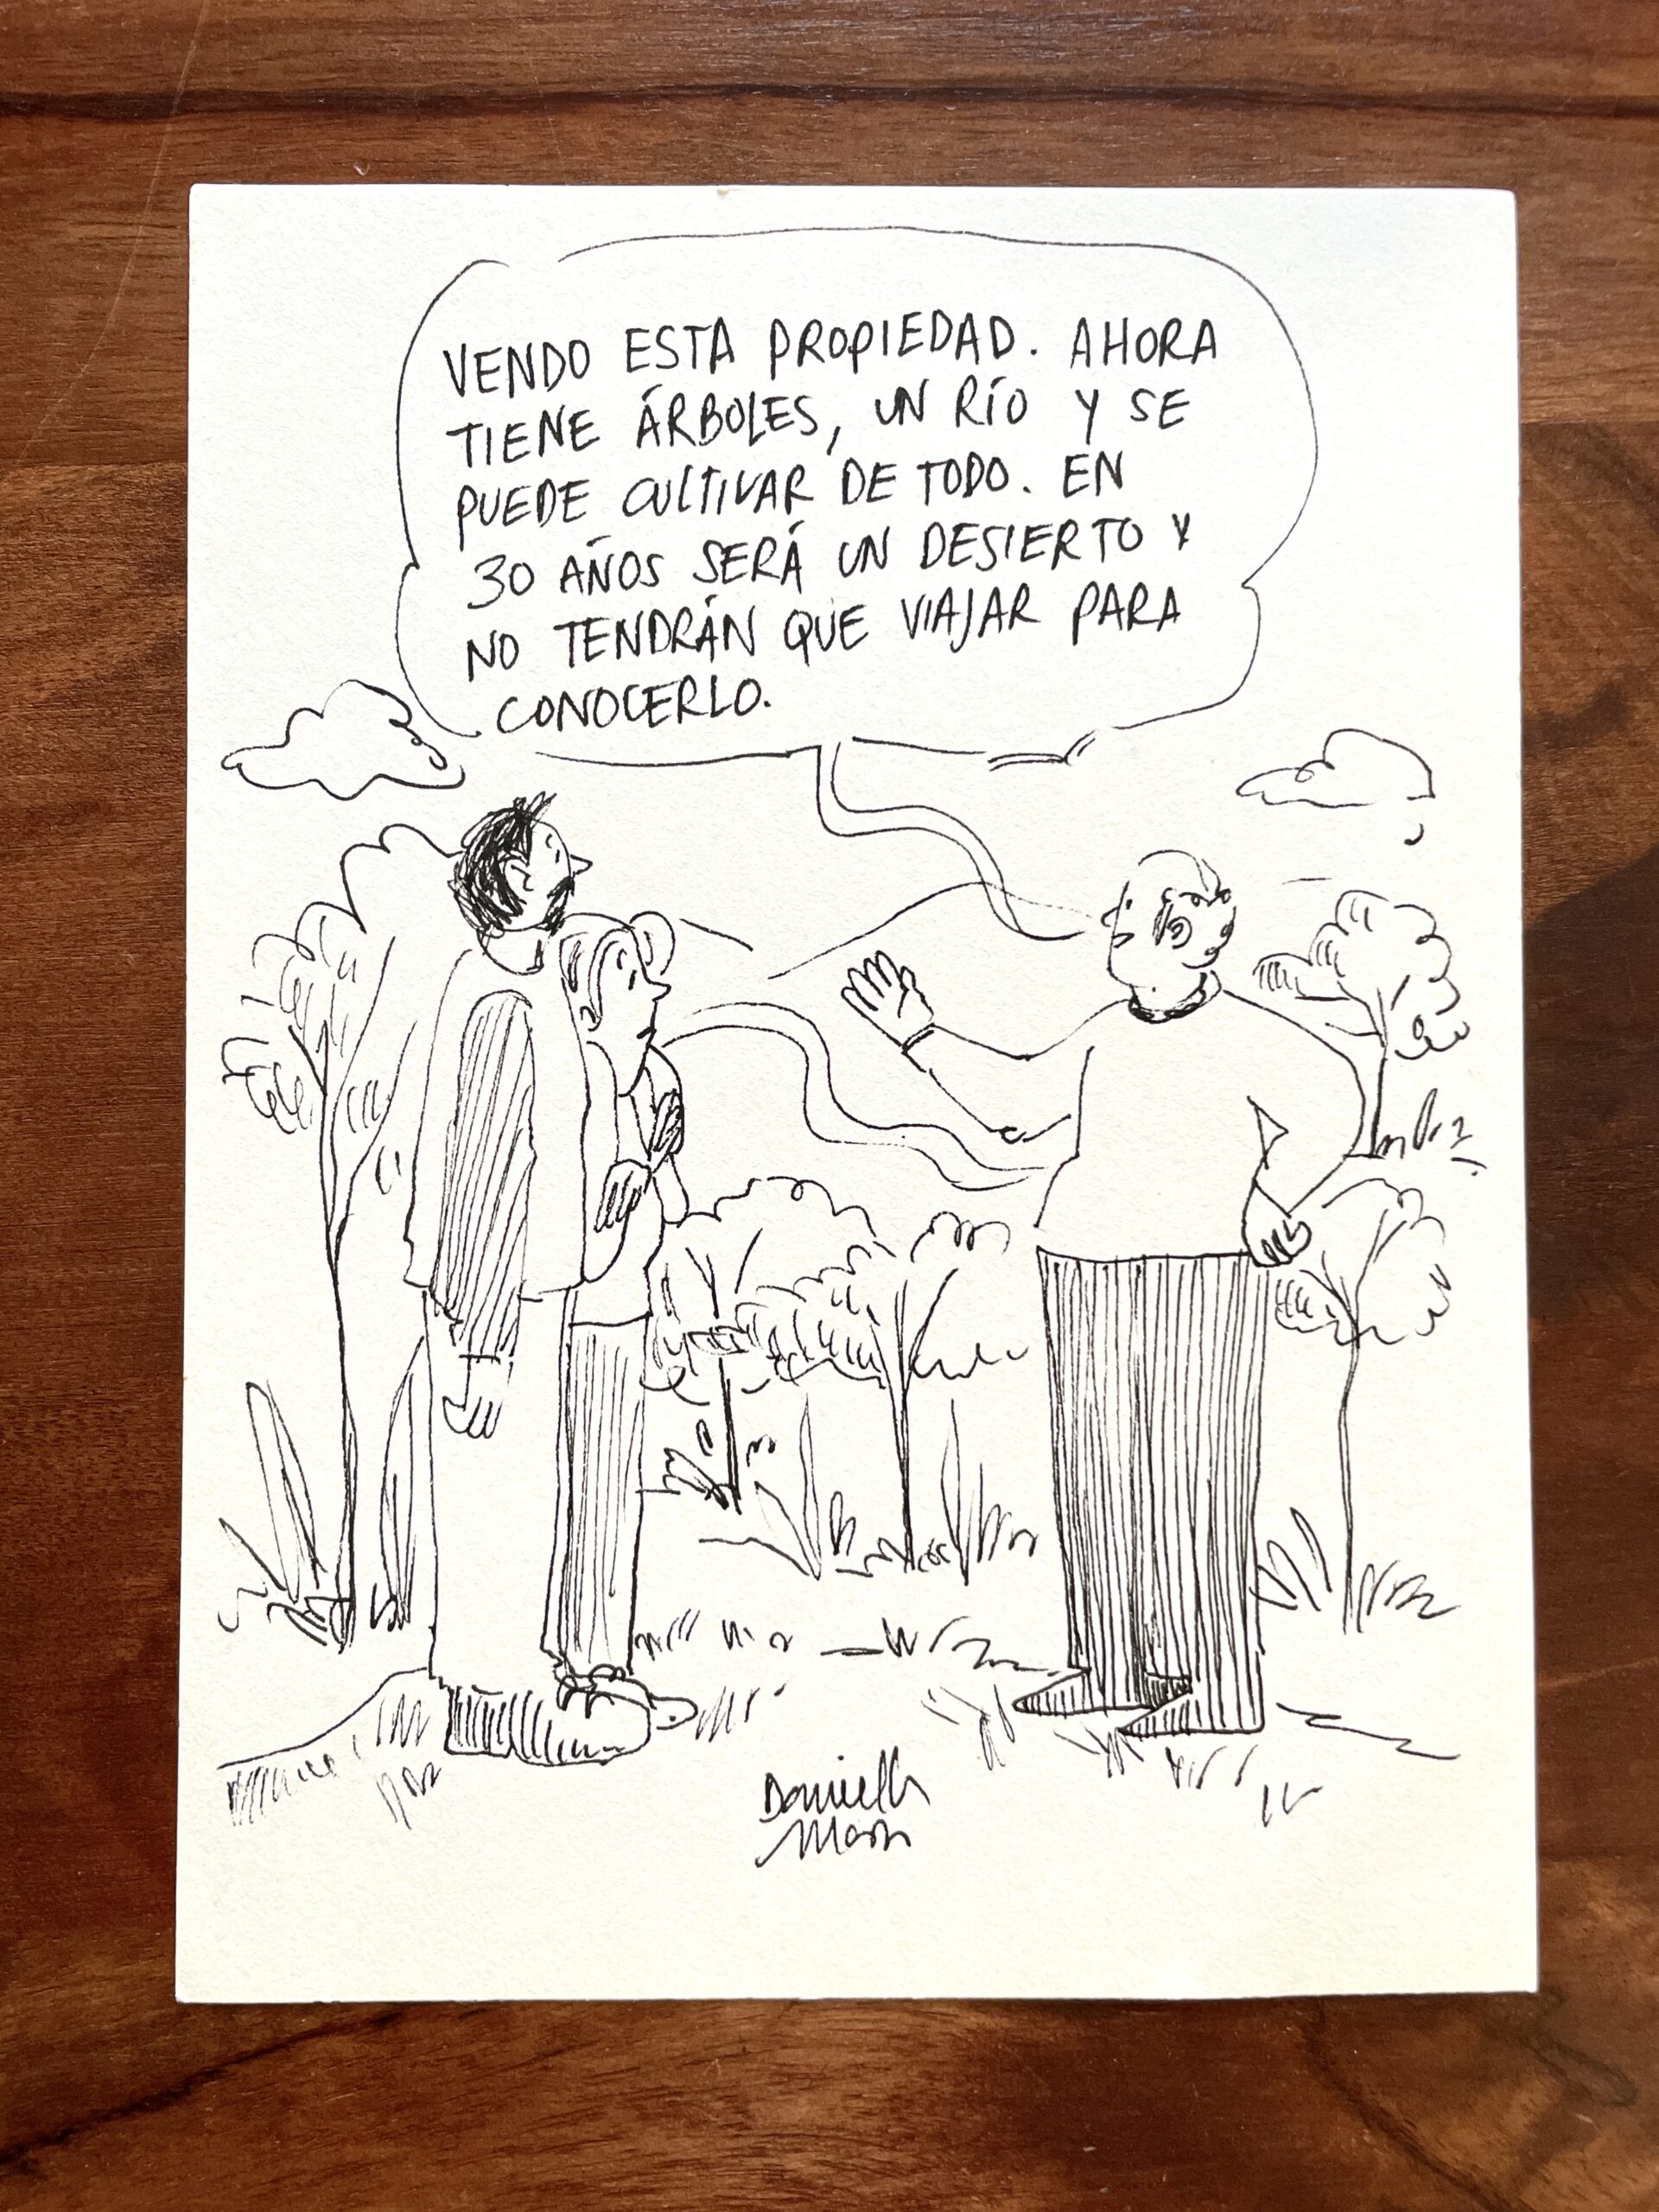 VENDO ESTA PROPIEDAD. AHORA
TIENE ÁRBOLES, UN RÍO Y SE
PUEDE CULTIVAR DE TODO. EN
30 AÑOS SERÁ UN DESIERTO Y
NO TENDRÁN QUE VIAJAR PARA
CONOCERLO.